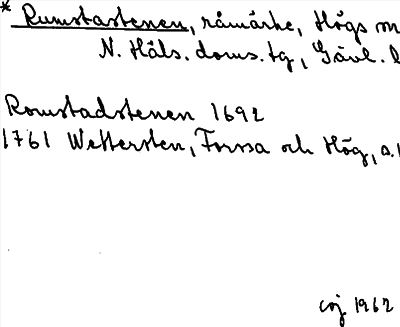 * Rumstastenen, råmärke, Högs
N. Häls. doms. tg, Gävl. l
Romstadstenen 1692
1761 Wettersten, Forssa och Hög, s.
1962